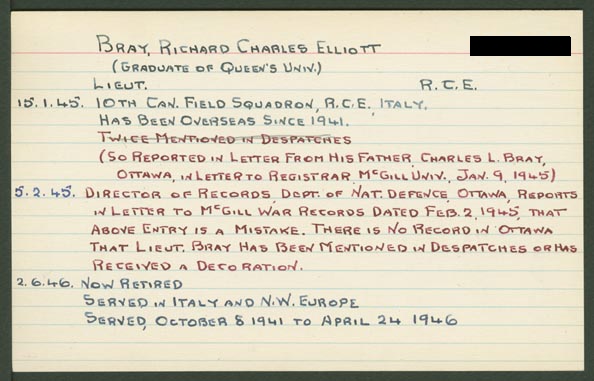 BRAY, RICHARD CHARLES ELLIOTT
(GRADUATE OF QUEEN'S UNIV.)
LIEUT. R.C.E.
15.1.45. 10TH CAN. FIELD SQUADRON, R.C.E, ITALY.
HAS BEEN OVERSEAS SINCE 1941.
TWICE MENTIONED IN DESPATCHES
(SO REPORTED IN LETTER FROM HIS FATHER, CHARLES L. BRAY,
OTTAWA, IN LETTER TO REGISTRAR, MCGILL UNIV., JAN. 9, 1945)
5.2.45. DIRECTOR OF RECORDS, DEPT. OF NAT. DEFENCE, OTTAWA, REPORTS
IN LETTER TO MCGILL WAR RECORDS DATED FEB. 2, 1945, THAT
ABOVE ENTRY IS A MISTAKE. THERE IS NO RECORD IN OTTAWA
THAT LIEUT. BRAY HAS BEEN MENTIONED IN DESPATCHES OR HAS
RECEIVED A DECORATION.
2.6.46. NOW RETIRED
SERVED IN ITALY AND N.W. EUROPE
SERVED, OCTOBER 8 1941 TO APRIL 24 1946